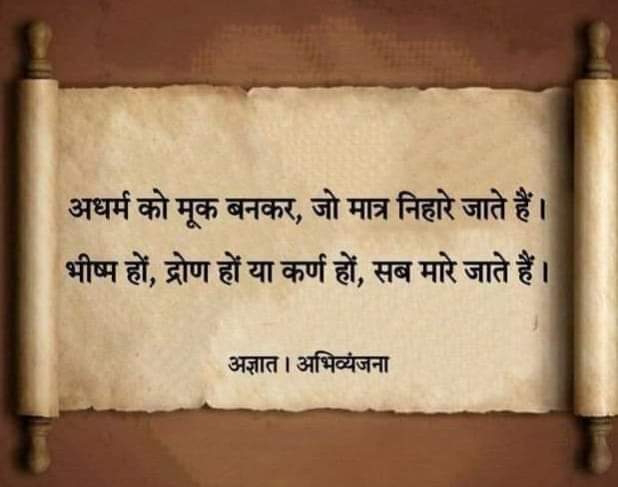 अधर्म को मूक बनकर, जो मात्र निहारे जाते हैं।
भीष्म हों, द्रोण हों या कर्ण हों, सब मारे जाते हैं।
अज्ञात । अभिव्यंजना